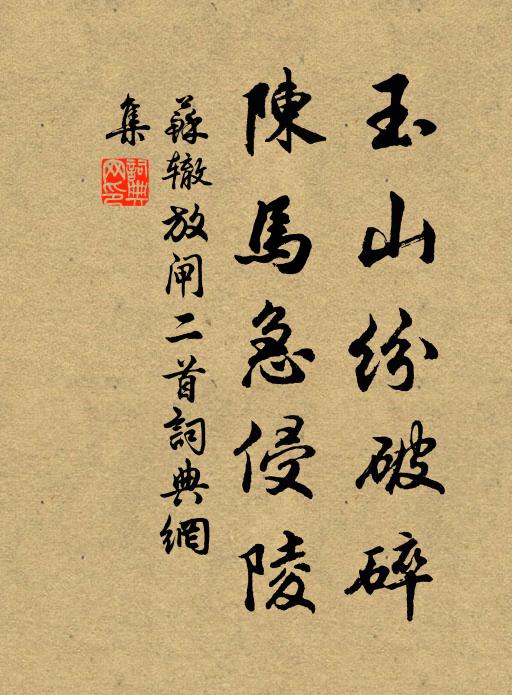 玉山纷破碎
陳馬急侵陵
蘇辙放闸二首詞典網
集
詞典网印